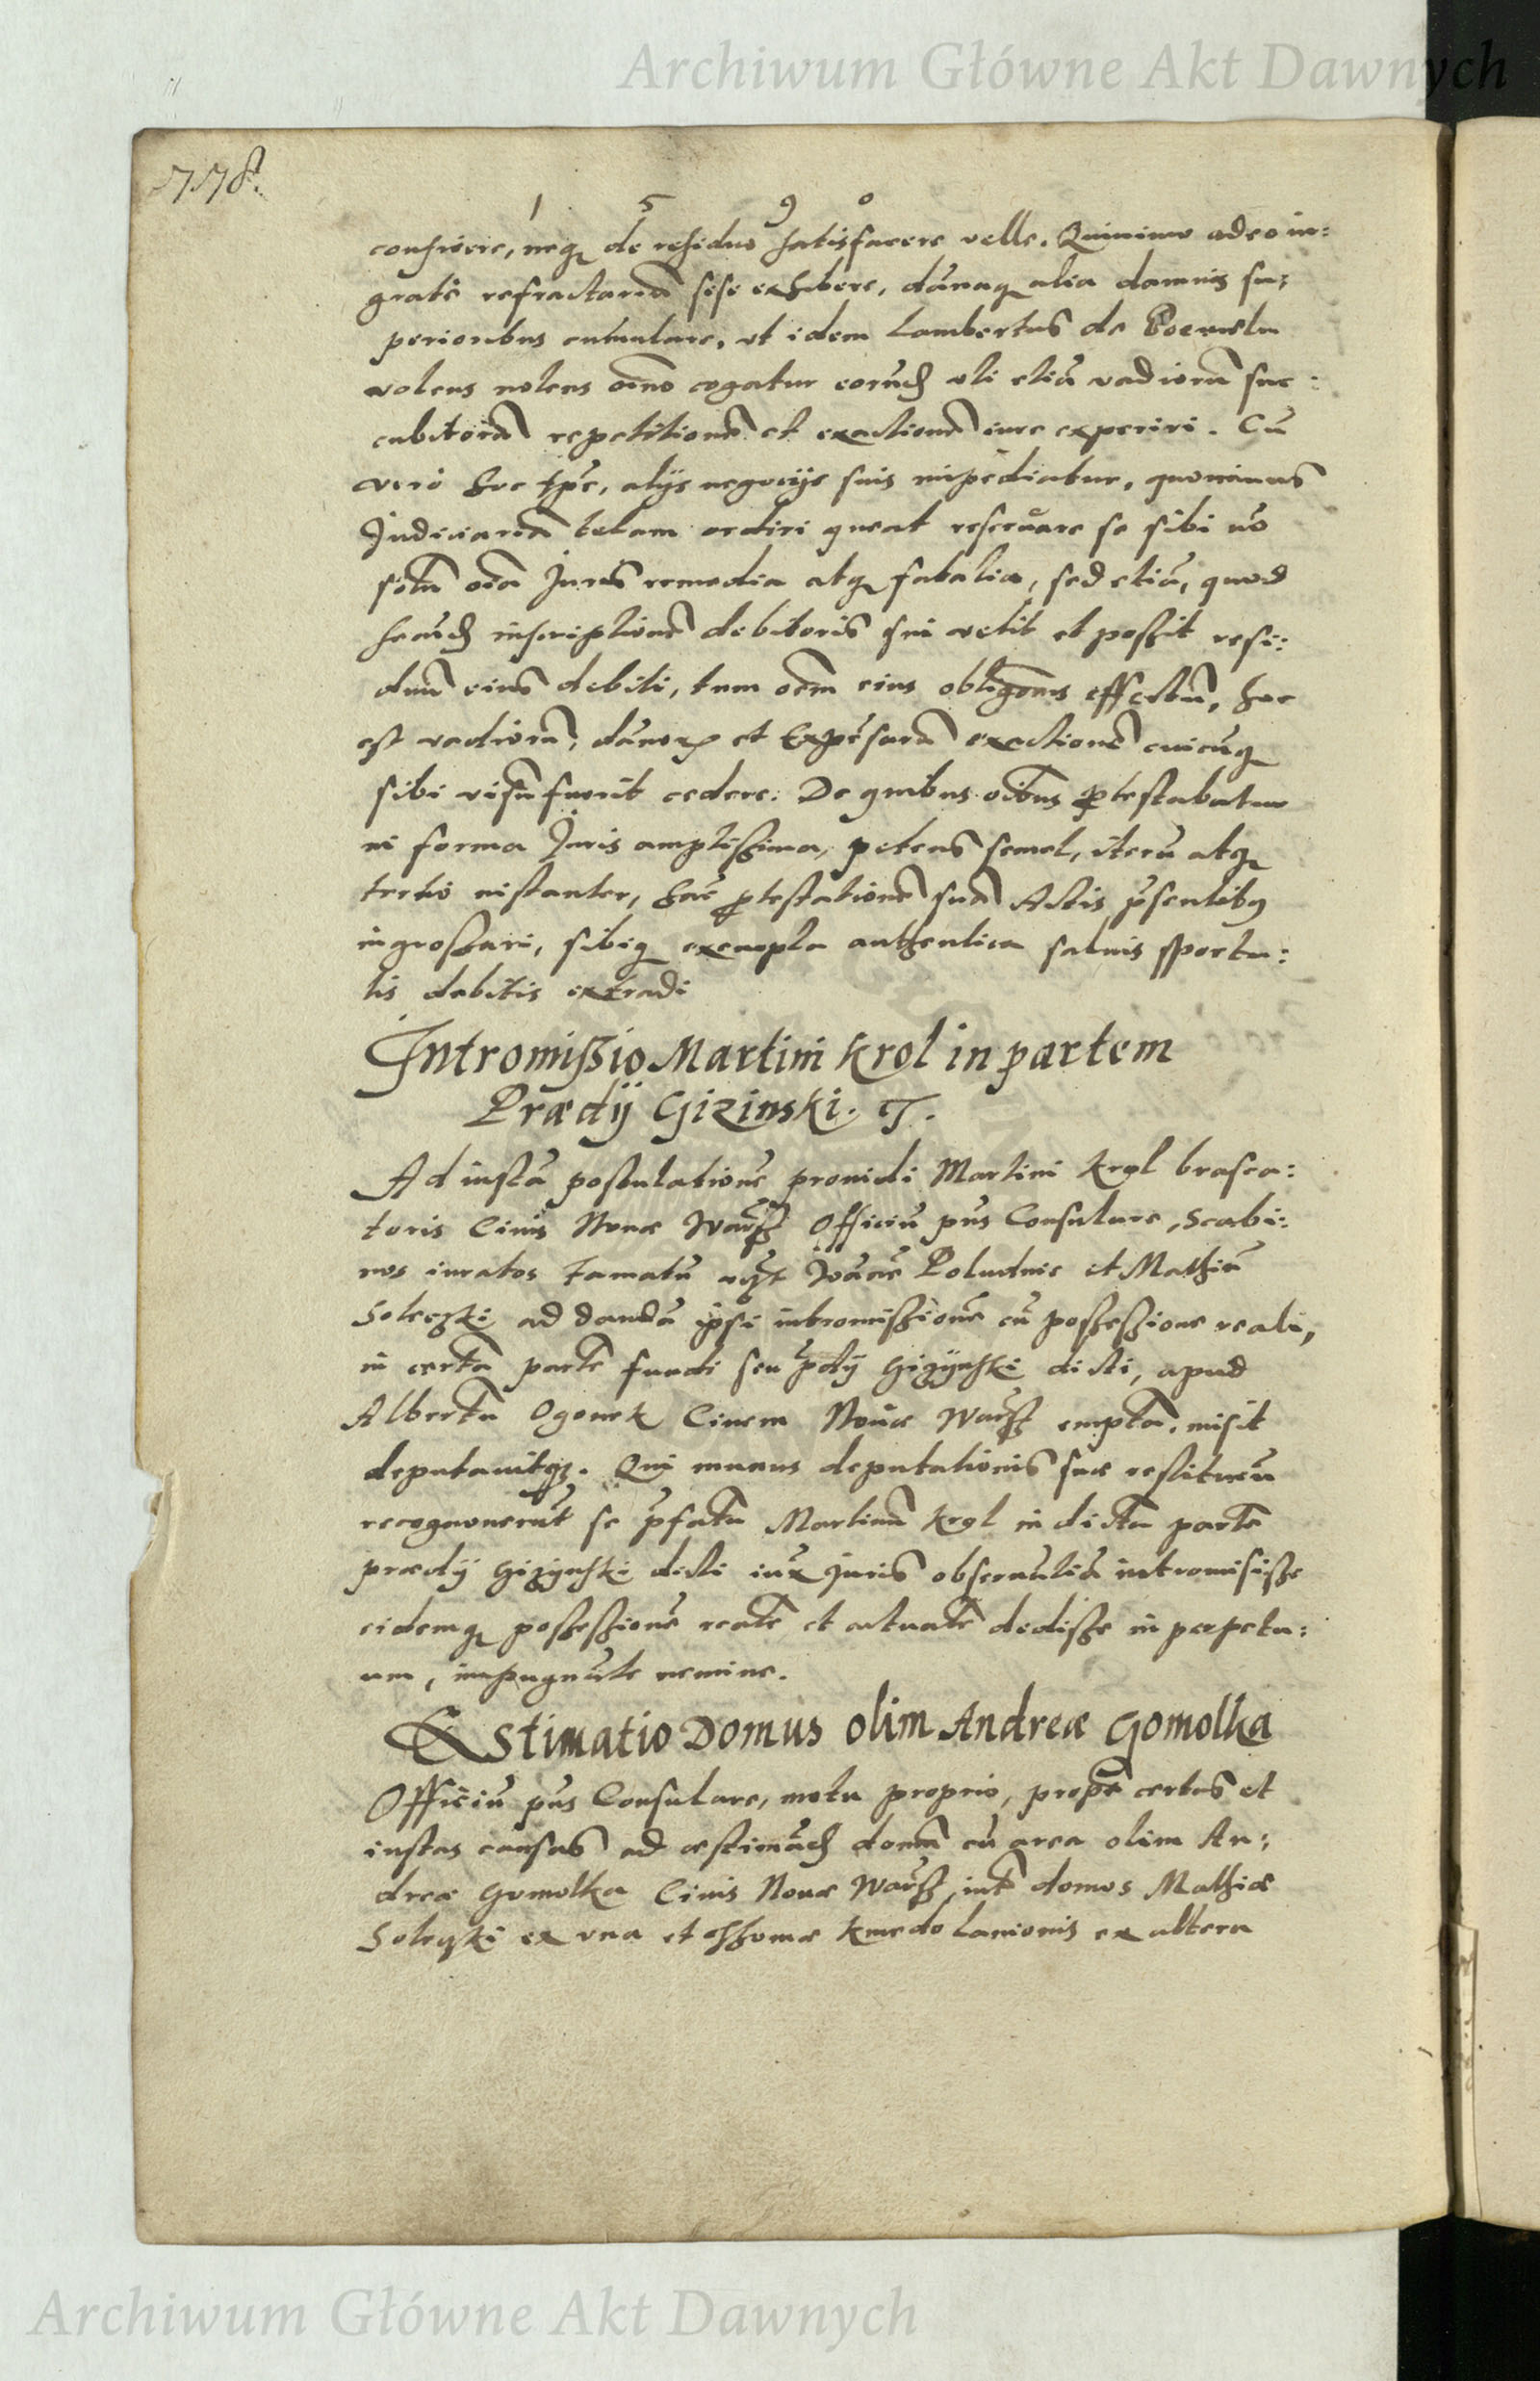 Archiwum Główne Akt Dawnych
778.
1 5 9 0
neq, de residuo satisfacere velle. Quinimo adeo in:
grate refractariā sese exhibere, dānaq, alia damnis su:
perioribus cumulare, vt idem Lambertus de
volens nolens oīno cogatur eorund vti etiā vadiorū suc:
cubitorū repetitionē et exactionē iure experiri. Cū
vero hoc tpe, alijs negocijs suis impediatur, quominus
Judiciariā telam ordiri queat reseruare se sibi nō
solū oīa Juris remedia atq, sed etiā, quod
inscriptionē debitoris sui velit et possit resi:
duū eius debiti, tum oēm eius obligaōnis effectū, hoc
est vadiorū, dānorū et Expēsarū exactionē cuicūq,
sibi visū fuerit cedere. De quibus oībus ptestabatur
in forma Juris amplissima, petens semel, iterū atq,
tertio instanter, hāc ptestationē suā Actis psentibus
ingrossari, sibiq, exempla authentica saluis sportu:
lis debitis extradi
Intromissio Martini Krol in partem
Prædij Gizinski. T.
Ad iustā postulationē prouidi Martini Krol braxea:
toris Ciuis Nouæ Warss Officiū pns Consulare, Scabi:
nos iuratos famatū Poludnie et Mathiā
Soleczki ad dandā ipsi intromissionē cū possessione reali,
in certā partē fundi seu pdij Gizynski dicti, apud
Albertū Ogonek Ciuem Nouæ Warss emptā, misit
deputauitq,. Qui munus deputationis suæ
recognouerūt se pfatū Martinū Krol in dictā partē
prædij Gizynski dicti iux Juris obseruātiā intromisisse
eidemq, possessionē realē et actualē dedisse in perpetu:
um, impugnāte nemine.
Æstimatio Domus olim Andreæ Gomolka
Officiū pns Consulare, motu proprio, certas et
iustas causas ad æstimād domū cū area olim An:
dreæ Gomolka Ciuis Nouæ Warss, int domos Mathiæ
Soleczki ex vna et Thomæ Kmedo lanionis ex altera
Archiwum Główne Akt Dawnych